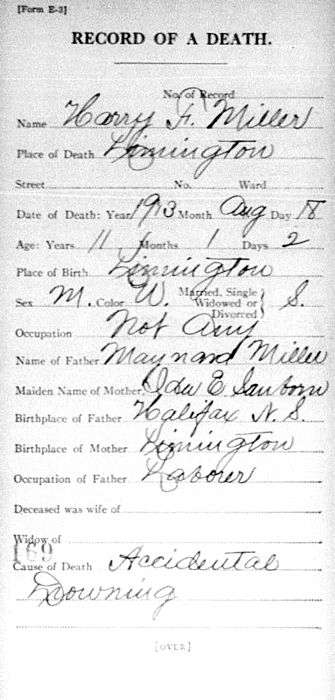 [Form E-3]
RECORD OF A DEATH.
No. of Record
Name Harry F. Miller
Place of Death Limington
Street No. Ward
Date of Death: Year 1913 Month Aug Day 18
Age: Years 11 Months 1 Days 2
Place of Birth Limington
Sex M. Color W. Married, Single Widowed or Divorced } S.
Occupation Not Any
Name of Father Maynard Miller
Maiden Name of Mother, Ida E Sanborn
Birthplace of Father Halifax N. S.
Birthplace of Mother Limington
Occupation of Father Laborer
Deceased was wife of
Widow of
169
Cause of Death Accidental
Drowning
[OVER]